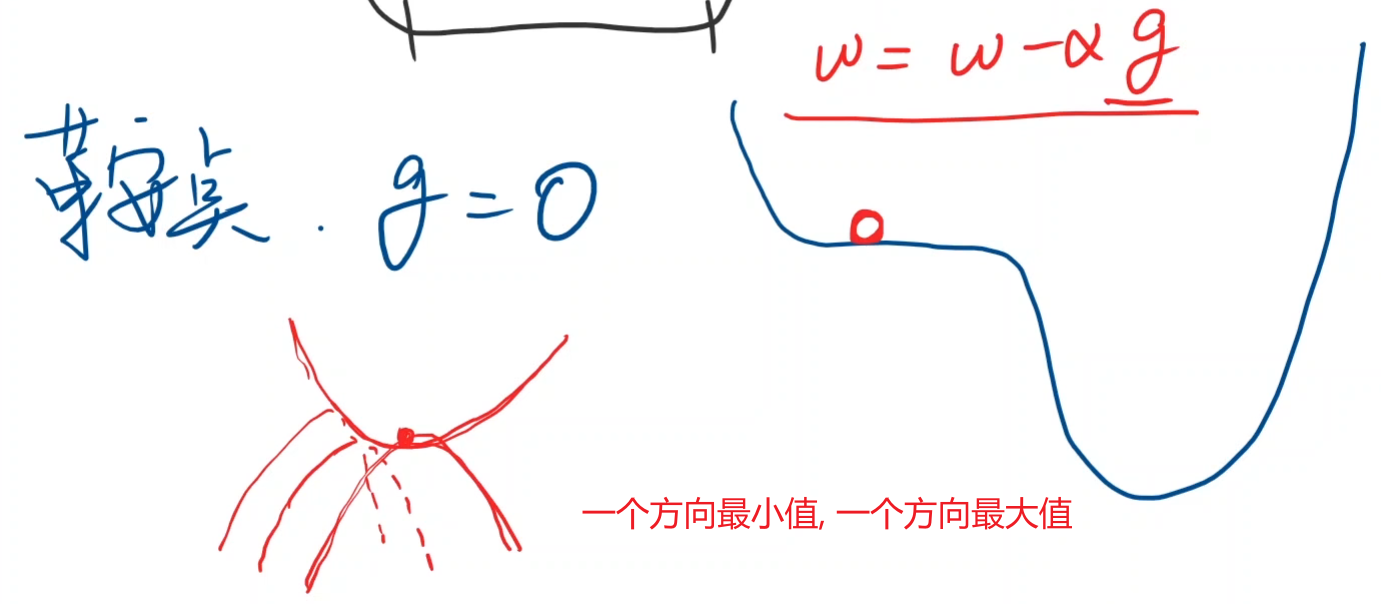 w = w - α g
鞍点. g = 0
一个方向最小值, 一个方向最大值